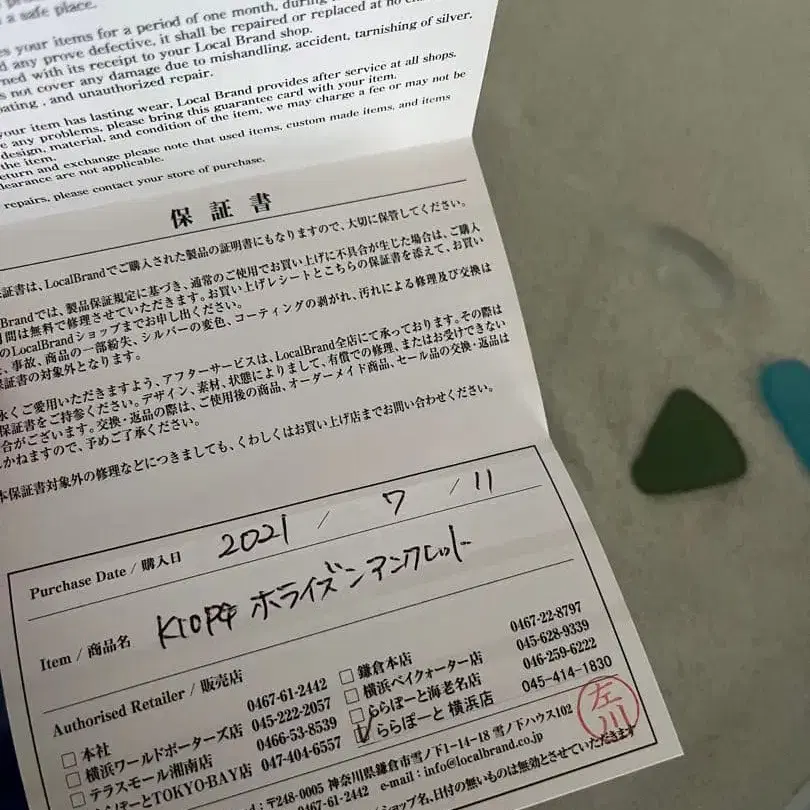 a safe place.
es your items for a period of one month, during
d any prove defective, it shall be repaired or replaced at no
ned with its receipt to your Local Brand shop.
s not cover any damage due to mishandling, accident, tarnishing of silver,
oating , and unauthorized repair.
your item has lasting wear, Local Brand provides after service at all shops.
e any problems, please bring this guarantee card with your item.
design, material, and condition of the item, we may charge a fee or may not be
the item.
eturn and exchange please note that used items, custom made items, and items
learance are not applicable.
repairs, please contact your store of purchase.
保 証 書
証書は、LocalBrandでご購入された製品の証明書にもなりますので、大切に保管してください。
Brandでは、製品保証規定に基づき、通常のご使用でお買い上げに不具合が生じた場合は、ご購入
月間は無料で修理させていただきます。お買い上げレシートとこちらの保証書を添えて、お買い
のLocalBrandショップまでお申し出ください。
、事故、商品の一部紛失、シルバーの変色、コーティングの剥がれ、汚れによる修理及び交換は
保証書の対象外となります。
永くご愛用いただきますよう、アフターサービスは、LocalBrand全店にて承っております。その際は
保証書をご持参ください。デザイン、素材、状態によりまして、有償での修理、またはお受けできない
合がございます。交換・返品の際は、ご使用後の商品、オーダーメイド商品、セール品の交換・返品は
かねますので、予めご了承ください。
本保証書対象外の修理などにつきましても、くわしくはお買い上げ店までお問い合わせください。
Purchase Date / 購入日 2021 / 7 / 11
Item / 商品名 K10PG ホライズンアンクレット
Authorised Retailer / 販売店
□ 本社 0467-61-2442 □ 鎌倉本店 0467-22-8797
□ 横浜ワールドポーターズ店 045-222-2057 □ 横浜ベイクォーター店 045-628-9339
□ テラスモール湘南店 0466-53-8539 □ ららぽーと海老名店 046-259-6222
ららぽーとTOKYO-BAY店 047-404-6557 ☑ ららぽーと 横浜店 045-414-1830
左川
〒248-0005 神奈川県鎌倉市雪ノ下1-14-18 雪ノ下ハウス102
0467-61-2442 e-mail : info@localbrand.co.jp
ショップ名、日付の無いものは無効とさせていただきます